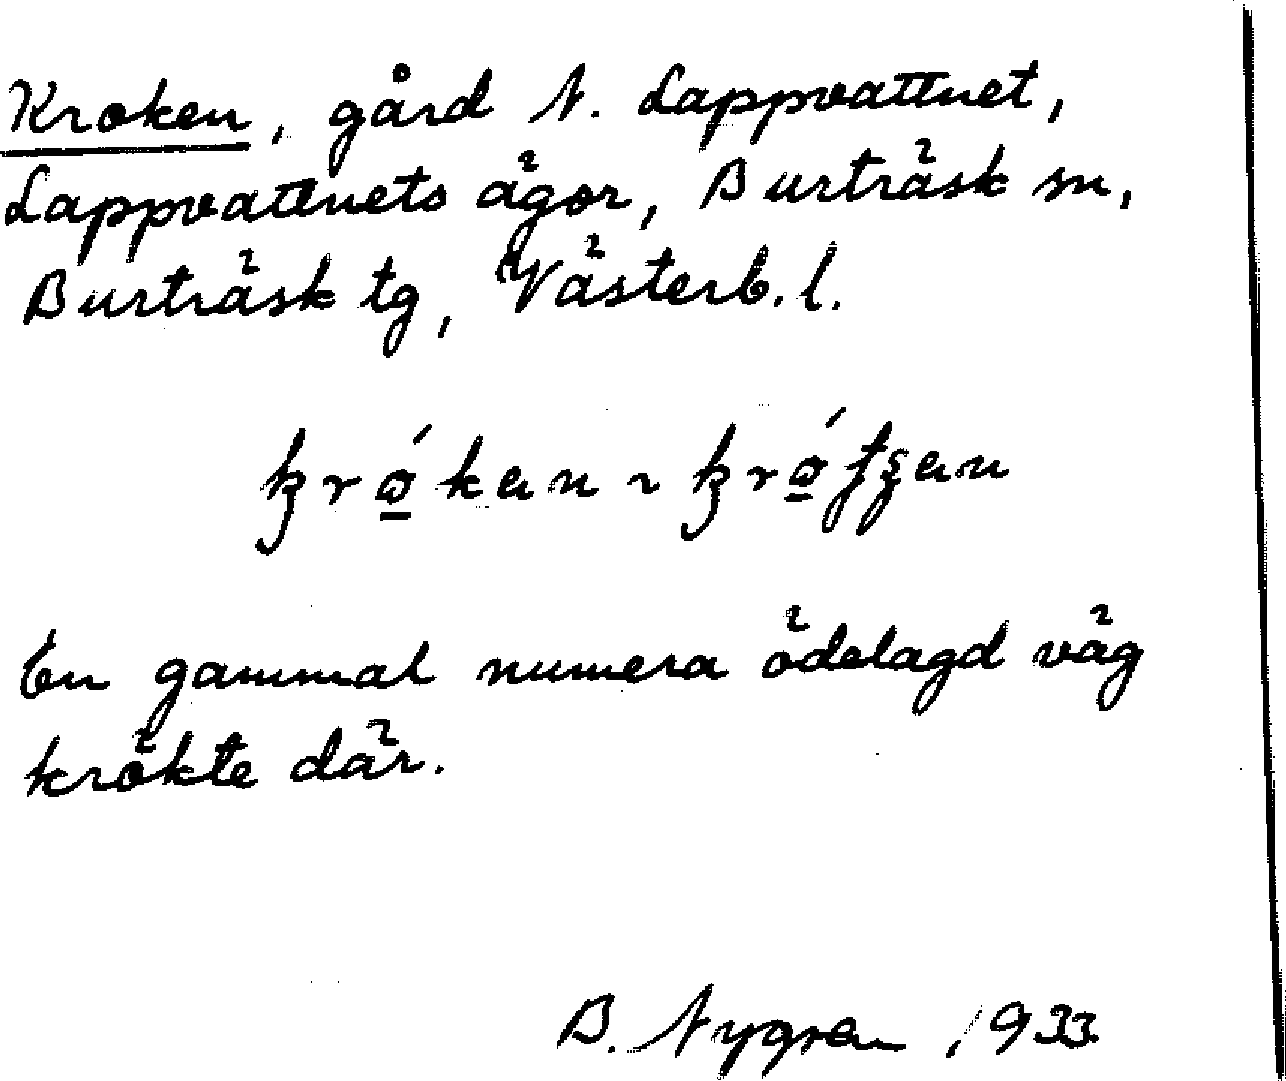 Kroken, gård N. Lappvattnet,
Lappvattnets ägor, Burträsk sn,
Burträsk tg, Västerb. l.
En gammal numera ödelagd väg
krökte där.
B. Nygren 1933